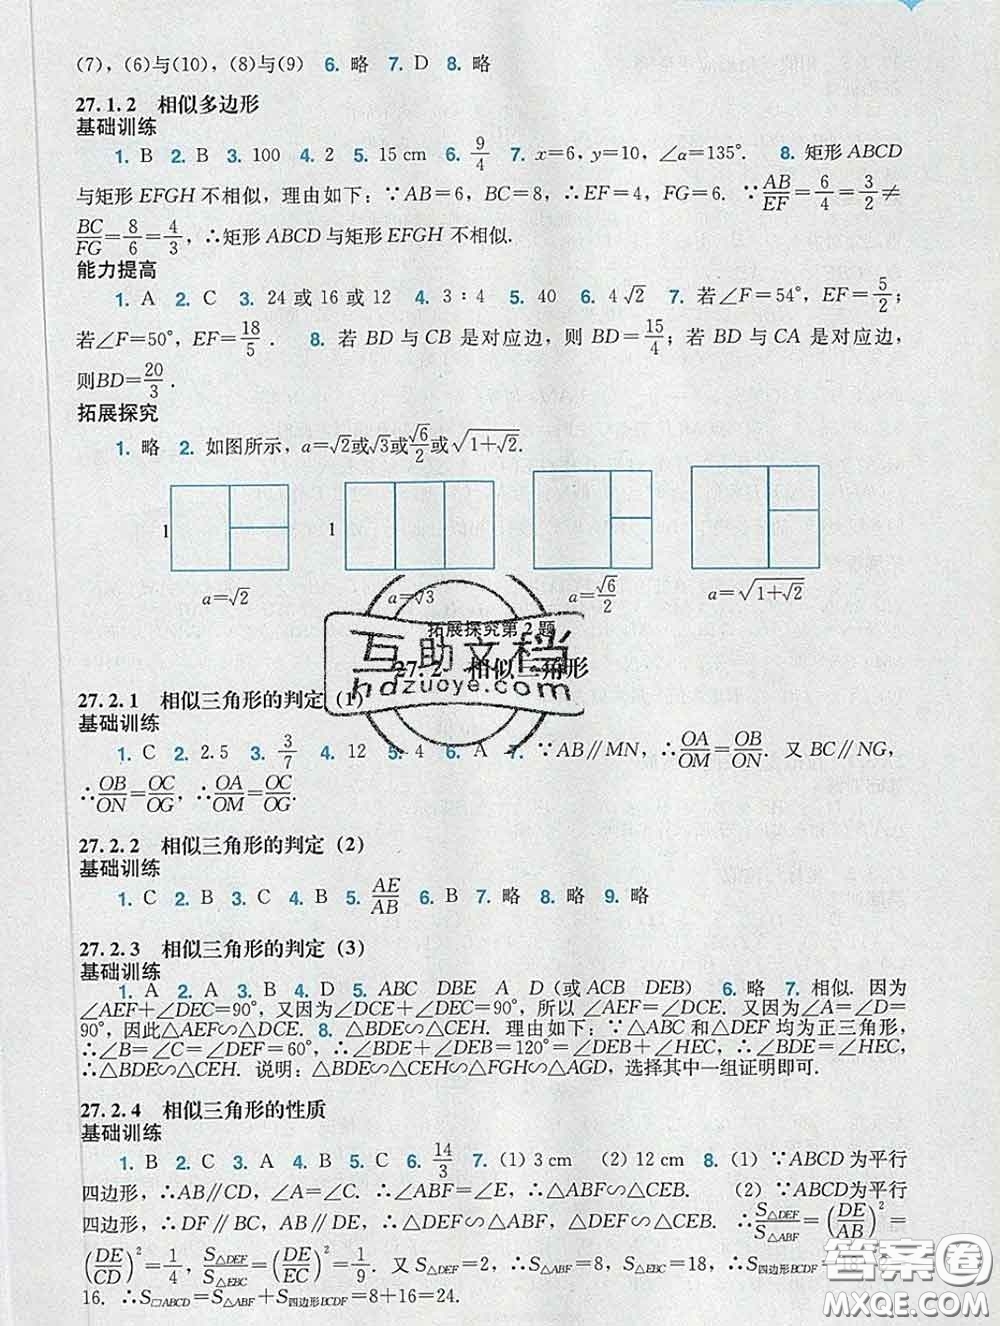 (7),(6)与(10),(8)与(9) 6. 略 7. D 8. 略
27.1.2 相似多边形
基础训练
1. B 2. B 3. 100 4. 2 5. 15 cm 6. 9/4 7. x=6,y=10,∠α=135°. 8. 矩形 ABCD
与矩形 EFGH 不相似,理由如下:∵AB=6,BC=8,∴EF=4,FG=6. ∵AB/EF=6/4=3/2≠
BC/FG=8/6=4/3,∴矩形 ABCD 与矩形 EFGH 不相似.
能力提高
1. A 2. C 3. 24 或 16 或 12 4. 3∶4 5. 40 6. 4√2 7. 若∠F=54°,EF=5/2;
若∠F=50°,EF=18/5. 8. 若 BD 与 CB 是对应边,则 BD=15/4;若 BD 与 CA 是对应边,
则BD=20/3.
拓展探究
1. 略 2. 如图所示,a=√2或√3或√6/2或√(1+√2).
1 1
a=√2 a=√3 a=√6/2 a=√(1+√2)
拓展探究第 2 题
27.2 相似三角形
互助文档
hdzuoye.com
27.2.1 相似三角形的判定(1)
基础训练
1. C 2. 2.5 3. 3/7 4. 12 5. 4 6. A 7. ∵AB∥MN,∴OA/OM=OB/ON. 又 BC∥NG,
∴OB/ON=OC/OG,∴OA/OM=OC/OG.
27.2.2 相似三角形的判定(2)
基础训练
1. C 2. B 3. C 4. B 5. AE/AB 6. B 7. 略 8. 略 9. 略
27.2.3 相似三角形的判定(3)
基础训练
1. A 2. A 3. B 4. D 5. ABC DBE A D(或 ACB DEB) 6. 略 7. 相似. 因为
∠AEF+∠DEC=90°,又因为∠DCE+∠DEC=90°,所以∠AEF=∠DCE. 又因为∠A=∠D=
90°,因此△AEF∽△DCE. 8. △BDE∽△CEH. 理由如下:∵△ABC 和△DEF 均为正三角形,
∴∠B=∠C=∠DEF=60°,∴∠BDE+∠BED=120°=∠BED+∠HEC,∴∠BDE=∠HEC,
∴△BDE∽△CEH. 说明:△BDE∽△CEH∽△FGH∽△AGD,选择其中一组证明即可.
27.2.4 相似三角形的性质
基础训练
1. B 2. C 3. A 4. B 5. C 6. 14/3 7. (1) 3 cm (2) 12 cm 8. (1) ∵ABCD 为平行
四边形,∴AB∥CD,∠A=∠C. ∴∠ABF=∠E,∴△ABF∽△CEB. (2) ∵ABCD为平行
四边形,∴DF∥BC,AB∥DE,∴△DEF∽△ABF,△DEF∽△CEB. ∴S△DEF/S△ABF=(DE/AB)²=
(DE/CD)²=1/4,S△DEF/S△EBC=(DE/EC)²=1/9. 又 S△DEF=2,∴S△ABF=8,S△EBC=18,∴S四边形BCDF=
16. ∴S□ABCD=S△ABF+S四边形BCDF=8+16=24.
答案圈
MXQE.COM